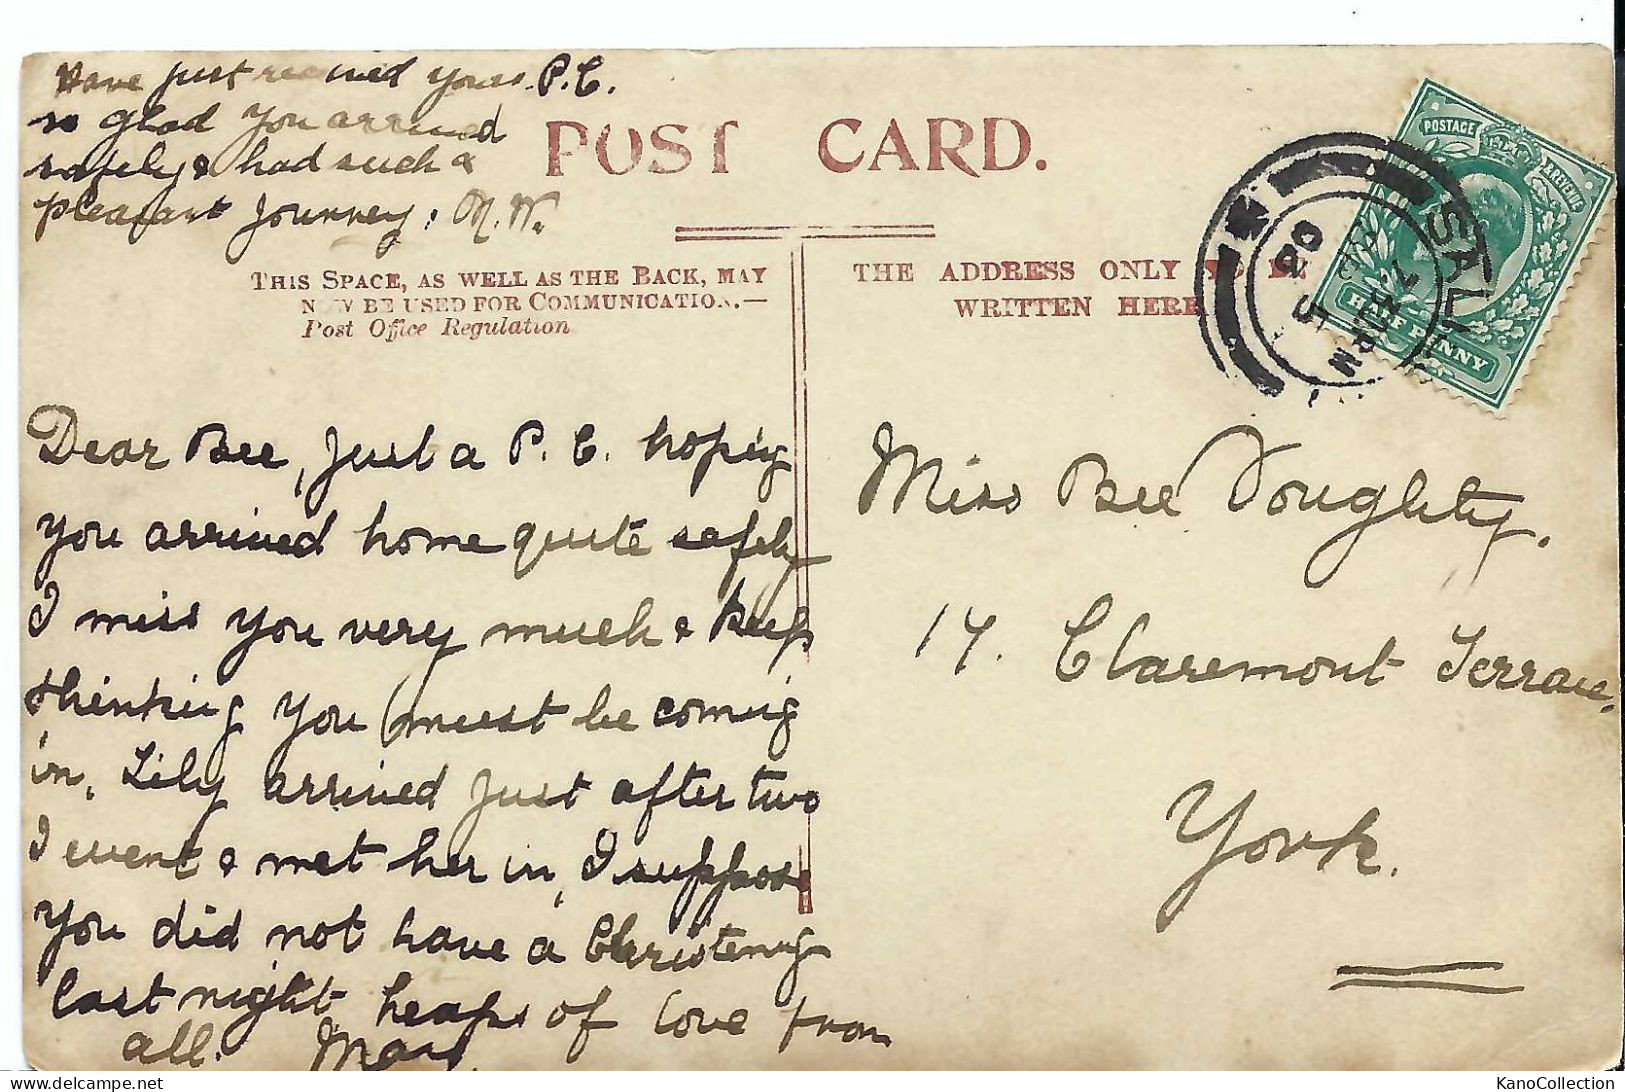 Have just received yours P.C.
so glad you arrived
safely & had such a
pleasant journey. M.W.
POST CARD.
THIS SPACE, AS WELL AS THE BACK, MAY
NOW BE USED FOR COMMUNICATION.—
Post Office Regulation
THE ADDRESS ONLY TO BE
WRITTEN HERE
POSTAGE & REVENUE
HALF PENNY
Dear Bee, Just a P. C. hoping
you arrived home quite safely
I miss you very much & keep
thinking you must be coming
in. Lily arrived just after two
I went & met her in, I suppose
you did not have a Christening
last night heaps of love from
all.
Miss Bee Doughty.
17. Claremont Terrace.
York.
KanoCollection